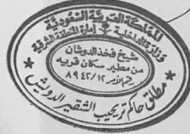 المملكة العربية السعودية
وزارة الداخلية - إمارة المنطقة الشرقية
شيخ فخذ الدوشان
من مطير سكان قرية
مطلق حاكم تريحيب الشقير الدويش